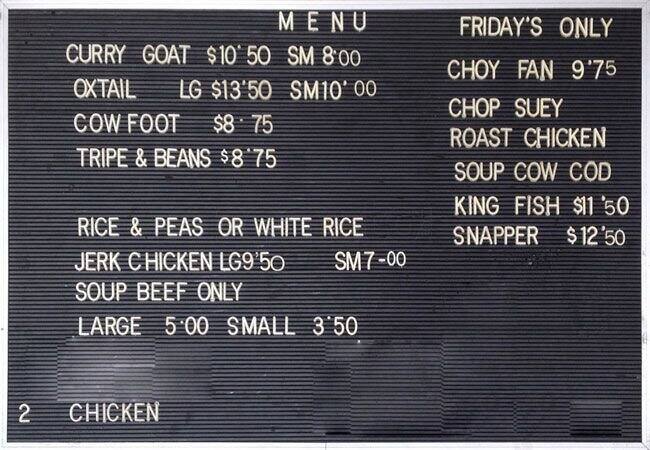 MENU
CURRY GOAT $10'50 SM 8'00
OXTAIL LG $13'50 SM10'00
COW FOOT $8'75
TRIPE & BEANS $8'75
RICE & PEAS OR WHITE RICE
JERK CHICKEN LG9'50 SM7-00
SOUP BEEF ONLY
LARGE 5'00 SMALL 3'50
2 CHICKEN
FRIDAY'S ONLY
CHOY FAN 9'75
CHOP SUEY
ROAST CHICKEN
SOUP COW COD
KING FISH $11'50
SNAPPER $12'50